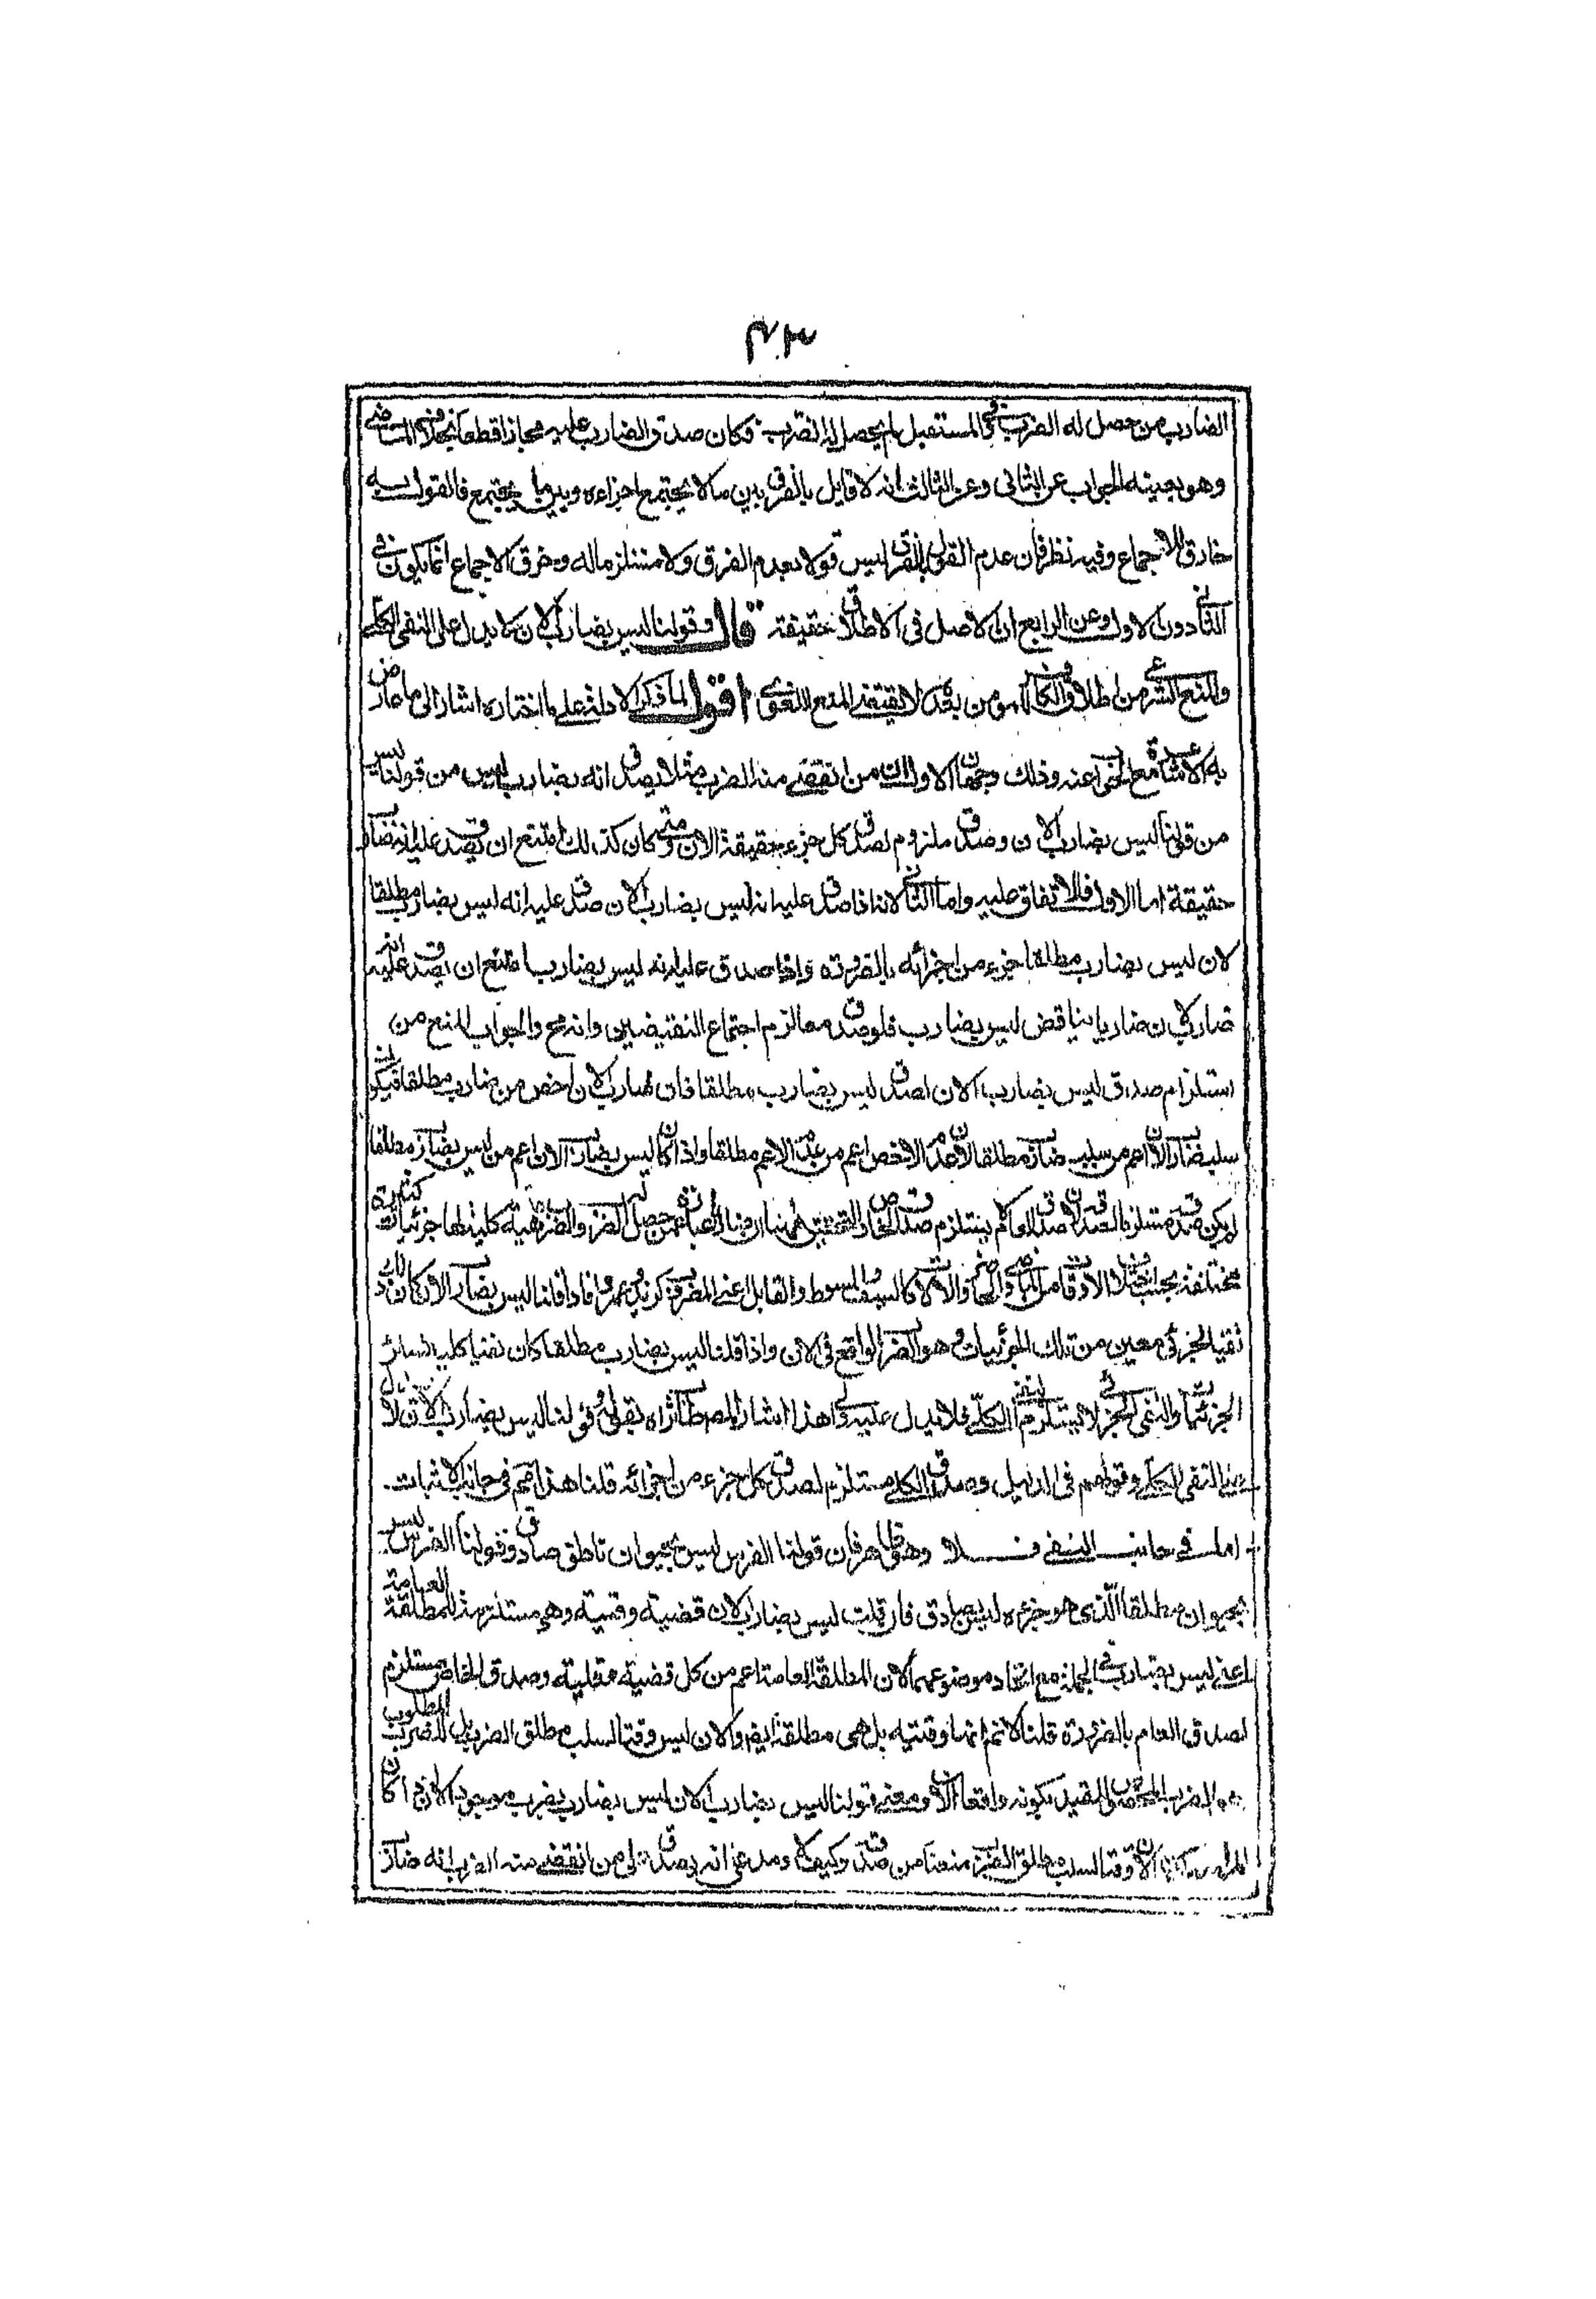 ۴۳
الضارب من حصل له الضرب و في المستقبل لم يحصل له الضرب فكان صدق الضارب عليه مجازا قطعا بخلاف الماضي
وهو بعينه الجواب عن الثاني وعن الثالث انه لا قايل بالفرق بين ما لا يجتمع اجزاءه وبين ما يجتمع فالقول به
خارق للاجماع وفيه نظر فان عدم القول بالفرق ليس قولا بعدم الفرق ولا مستلزما له وخرق الاجماع انما يكون في
الثاني دون الاول وعن الرابع ان الاصل في الاطلاق حقيقة قال وقولنا ليس بضارب الان لا يدل على النفي الكلي
والمنع الشرعي من اطلاق الكافر لمومن بعد كفره لا يقتضي المنع اللغوي اقول لما ذكر الادلة على ما اختاره اشار الى ما عارض
به الاشاعرة مع الجواب عنه وذلك وجهان الاول ان من انقضى منه الضرب مثلا يصدق انه بضارب ليس من قولنا ليس
من قولنا ليس بضارب الان وصدق ملزوم لصدق كل جزء حقيقة الان ومتى كان كذلك امتنع ان يصدق عليه انه ضارب
حقيقة اما الاول فللاتفاق عليه واما الثاني لانه اذا صدق عليه انه ليس بضارب الان صدق عليه انه ليس بضارب مطلقا
لان ليس بضارب مطلقا جزء من اجزائه بالضرورة واذا صدق عليه انه ليس بضارب امتنع ان يصدق عليه انه
ضارب لان ضاربا يناقض ليس بضارب فلو صدق معا لزم اجتماع النقيضين وانه مح والجواب المنع من
استلزام صدق ليس بضارب الان لصدق ليس بضارب مطلقا فان ضارب الان اخص من ضارب مطلقا فيكون
سلب ضارب الان اعم من سلب ضارب مطلقا لان عدم الاخص اعم من عدم الاعم مطلقا واذا كان ليس بضارب الان اعم من ليس بضارب مطلقا
لم يكن صدقه مستلزما لصدقه لان صدق العام لا يستلزم صدق الخاص والتحقيق ان ضارب عبارة عمن حصل له الضرب والضرب مهية كلية لها جزئيات كثيرة
مختلفة بحسب الاوقات من الماضي والحاضر والالات كالسيف والسوط والقابل اعني المضروب كزيد وعمرو فاذا قلنا ليس بضارب الان كان ذلك
نفيا لجزئي معين من تلك الجزئيات وهو الضرب الواقع في الان واذا قلنا ليس بضارب مطلقا كان نفيا كليا لسائر
الجزئيات والنفي الجزئي لا يستلزم النفي الكلي فلا يدل عليه والى هذا اشار المص طاب ثراه بقوله وقولنا ليس بضارب الان لا يدل
على النفي الكلي وقولهم في الدليل وصدق الكلي مستلزم لصدق كل جزء من اجزائه قلنا هذا مم في جانب الاثبات
اما في جانب النفي فلا وهو ظاهر فان قولنا الفرس ليس بحيوان ناطق صادق وقولنا الفرس ليس
بحيوان مطلقا الذي هو جزءه ليس بصادق فان قلت ليس بضارب الان قضية وقتية وهي مستلزمة للمطلقة العامة
اعني ليس بضارب في الجملة مع اتحاد موضوعهما لان المطلقة العامة اعم من كل قضية فعلية وصدق الخاص مستلزم
لصدق العام بالضرورة قلنا لا نم انها وقتية بل هي مطلقة ايض والان ليس وقتا لسلب مطلق الضرب بل المسلوب
هو الضرب المخصوص المقيد بكونه واقعا الان ومعنى قولنا ليس بضارب الان ليس بضارب بضرب موجود الان اذا كان
المراد الان وقتا لسلب مطلق الضرب منعنا من صدقه وكيف لا ومدعي انه يصدق على من انقضى منه الضرب انه ضارب